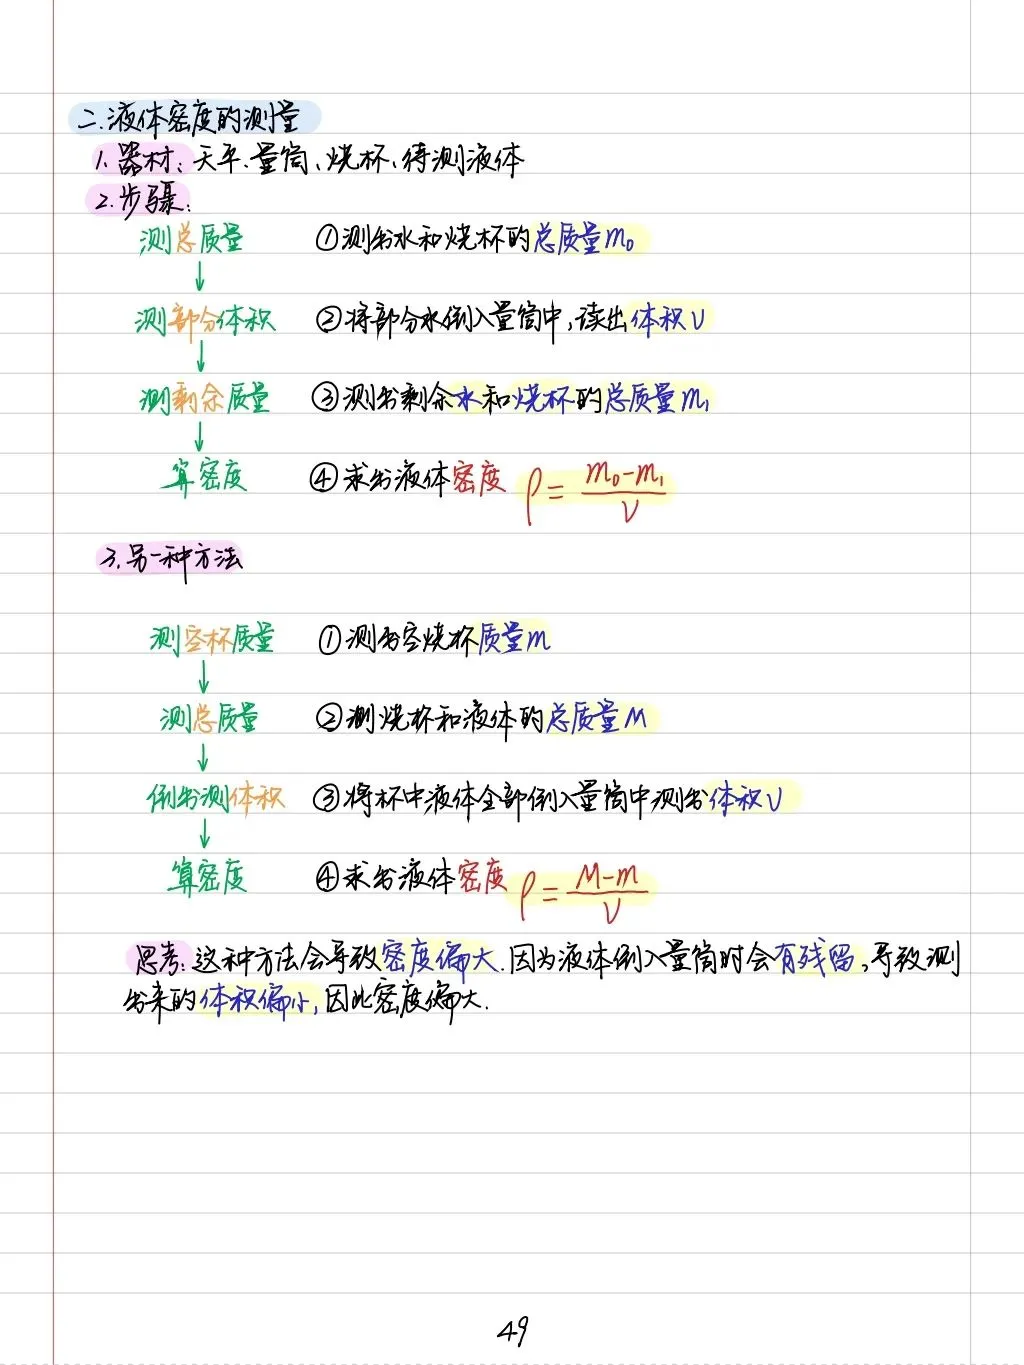 二.液体密度的测量
1.器材:天平、量筒、烧杯、待测液体
2.步骤:
测总质量 ①测出水和烧杯的总质量m₀
↓
测部分体积 ②将部分水倒入量筒中,读出体积V
↓
测剩余质量 ③测出剩余水和烧杯的总质量m₁
↓
算密度 ④求出液体密度 ρ=(m₀-m₁)/V
3.另一种方法
测空杯质量 ①测出空烧杯质量m
↓
测总质量 ②测烧杯和液体的总质量M
↓
倒出测体积 ③将杯中液体全部倒入量筒中测出体积V
↓
算密度 ④求出液体密度 ρ=(M-m)/V
思考:这种方法会导致密度偏大.因为液体倒入量筒时会有残留,导致测
出来的体积偏小,因此密度偏大.
49